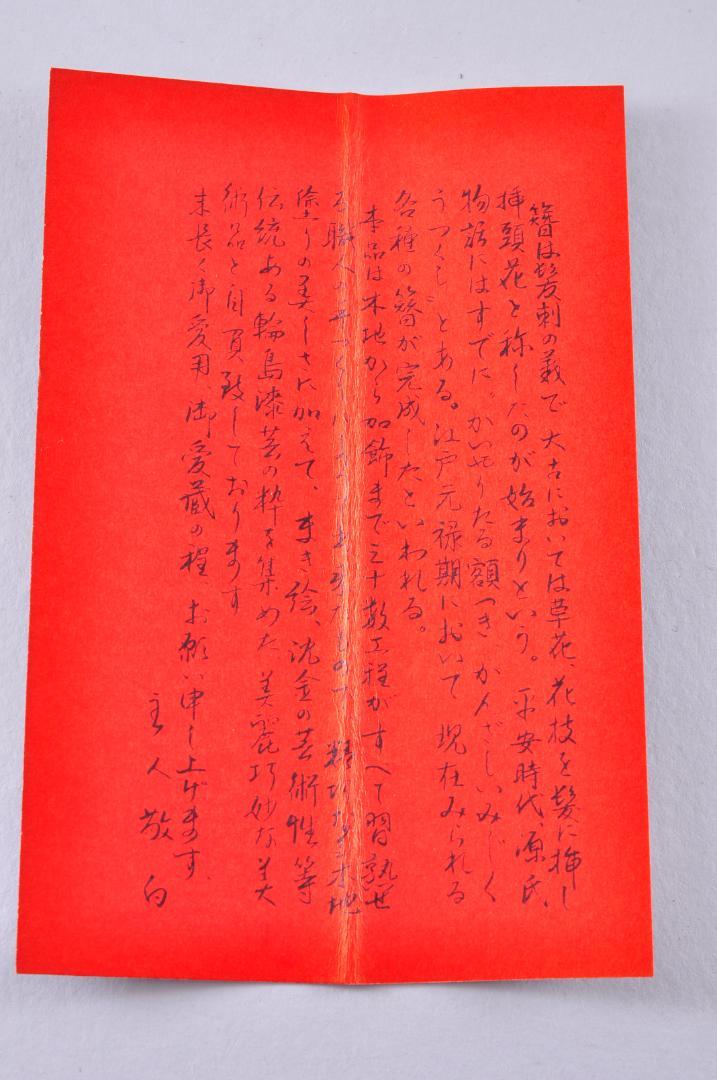 簪は髪刺の義で大古においては草花、花枝を髪に挿し
挿頭花と称したのが始まりという。平安時代、源氏
物語にはすでに〝かいやりたる額つき、がんざしいみじく
うつくし〟とある。江戸元禄期において現在みられる
各種の簪が完成したといわれる。
本品は木地から加飾まで三十数工程がすべて習熟せ
る職人の手づくりに
塗りの美しさに加えて、まき絵、沈金の芸術性等
伝統ある輪島漆芸の粋を集めた美麗巧妙な美
術品と自負致しております
末長く御愛用御愛蔵の程お願い申し上げます。
主人敬白